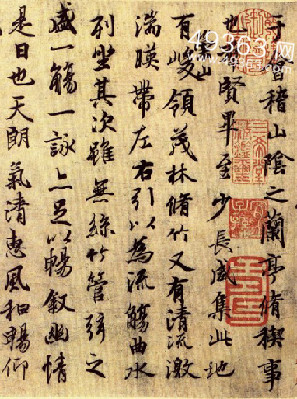 于會稽山陰之蘭亭脩禊事
也羣賢畢至少長咸集此地
有崇山峻領茂林脩竹又有清流激
湍暎帶左右引以為流觴曲水
列坐其次雖無絲竹管弦之
盛一觴一詠亦足以暢敘幽情
是日也天朗氣清惠風和暢仰
49363网
49363.com